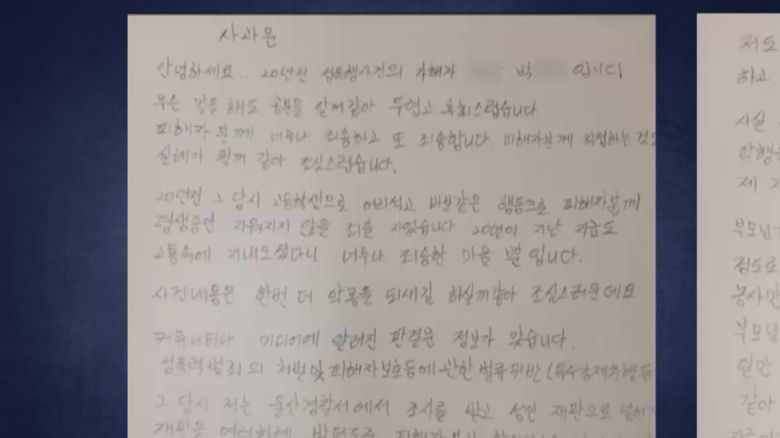 사과문
안녕하세요.. 20년전 성폭행사건의 가해자 박 입니다
무슨 말을 해도 공분을 살꺼같아 두렵고 후회스럽습니다
피해자분께 너무나 죄송하고 또 죄송합니다 피해자분께 직접하는것도
실례가 될꺼 같아 조심스럽습니다.
20년전 그 당시 고등학생으로 어리석고 바보같은 행동으로 피해자분께
평생동안 지워지지 않을 죄를 지었습니다 20년이 지난 지금도
고통속에 지내오셨다니 너무나 죄송한 마음 뿐 입니다.
사건내용은 한번 더 악몽을 되새김 하실꺼같아 조심스러운데요
커뮤니티나 미디어에 알려진 판결문 정보가 맞습니다.
성폭력범죄의 처벌및피해자보호등에관한법류위반(특수강제추행등
그 당시 저는 울산경찰서에서 조사를 받고 성인 재판으로 넘어가
재판을 받던도중
저도
하고
사실
악행을
제
부모님
정도로
농사만
부모님
일만
같아